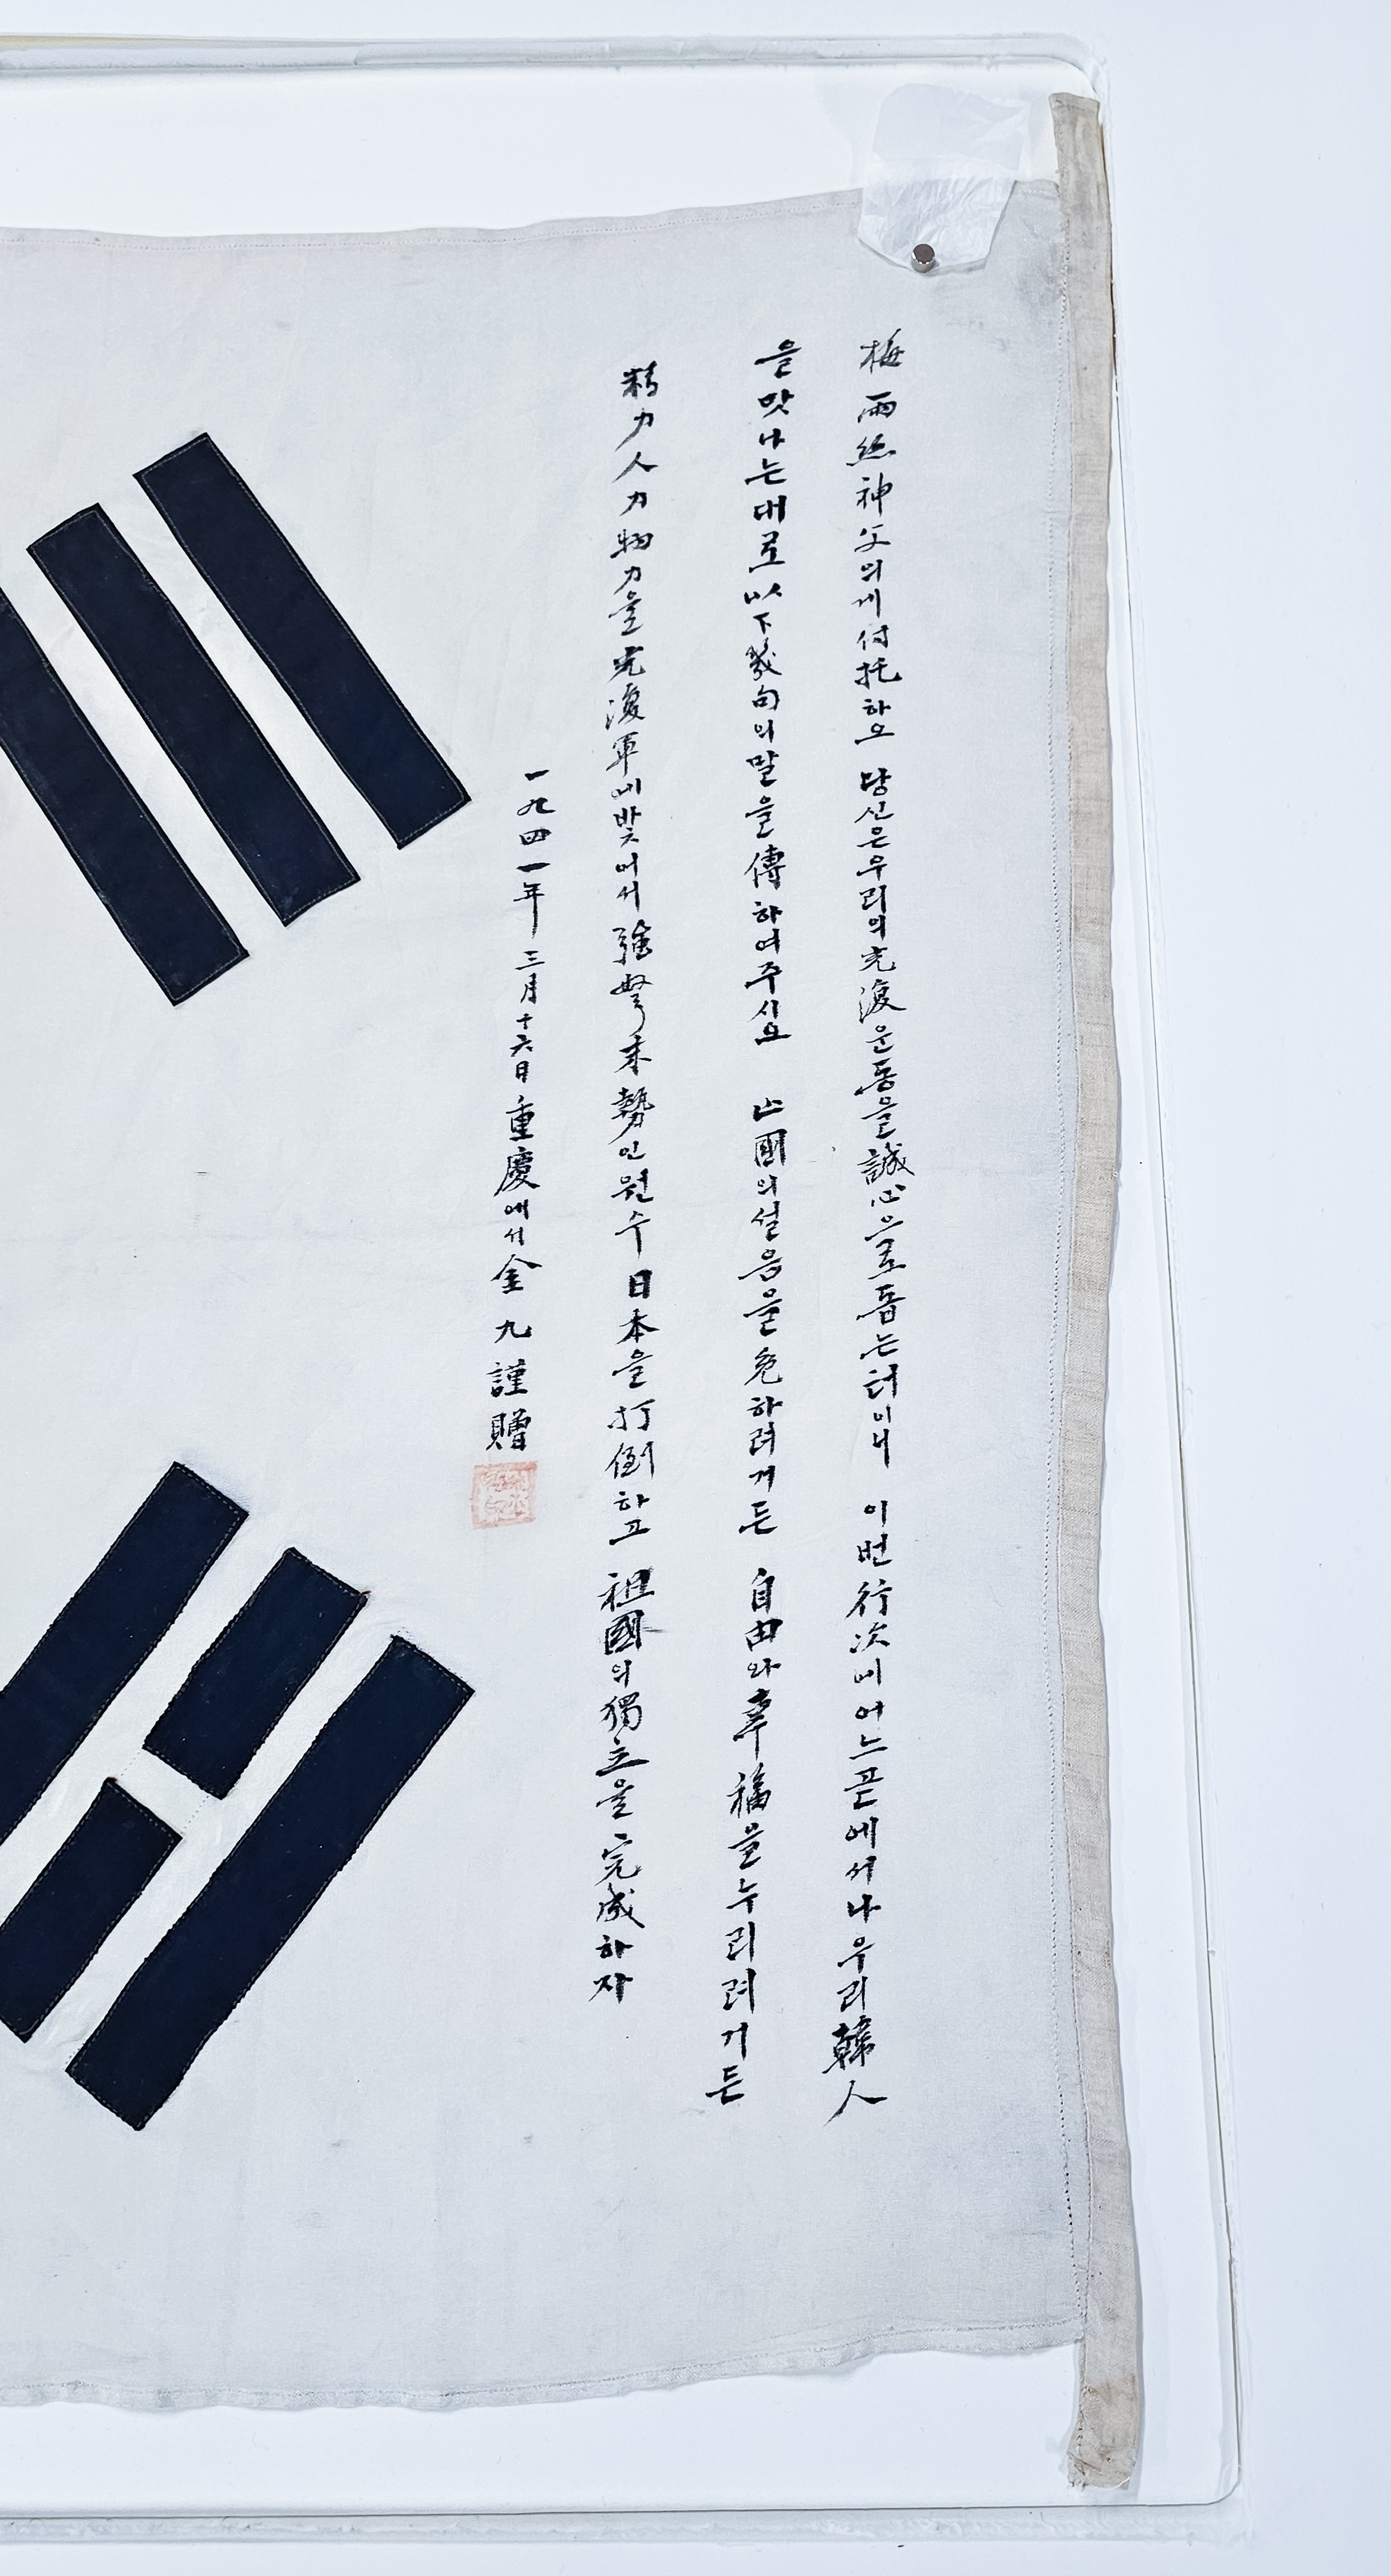 梅雨絲神父의게付托하오 당신은우리의光復운동을誠心으로돕는터이니 이번行次에어느곧에서나우리韓人
을맛나는대로以下幾句의말을傳하여주시오 亡國의설음을免하려거든 自由와幸福을누리려거든
精力人力物力을光復軍에밧어서強弩末勢인원수日本을打倒하고 祖國의獨立을完成하자
一九四一年三月十六日重慶에서金九謹贈